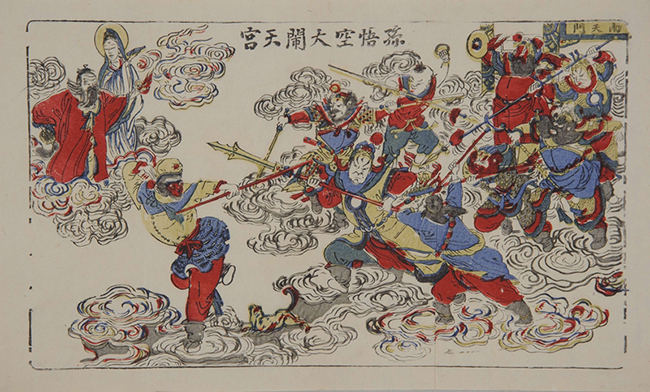 孫悟空大鬧天宮
南天門